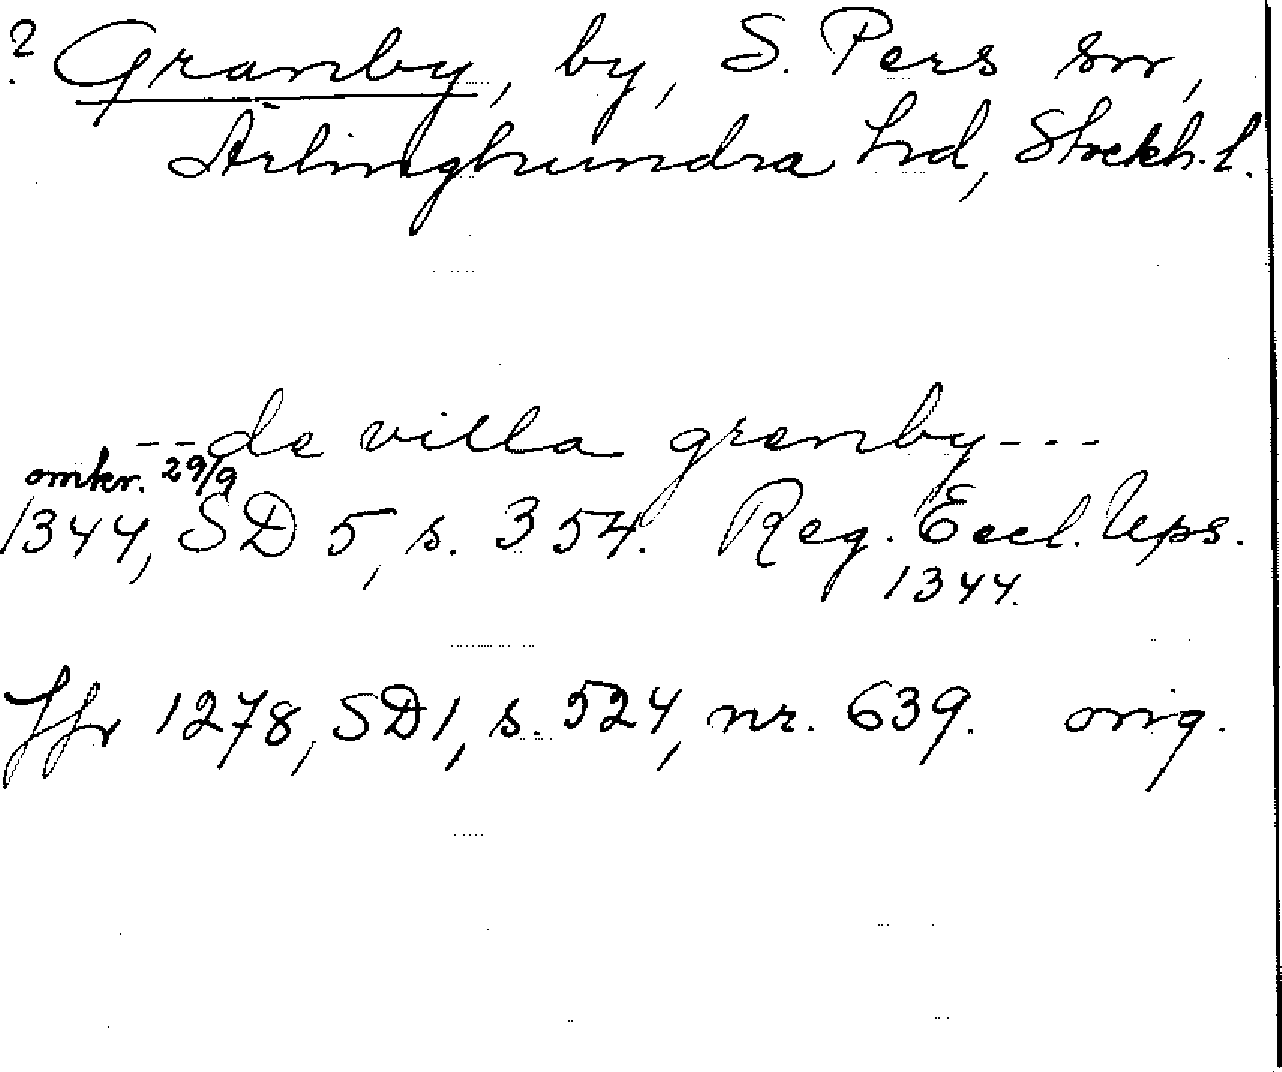 ? Granby, by, S. Pers sn,
Ärlinghundra hd, Stockh. l.
-- de villa grenby ---
omkr. 29/9
1344, SD 5, s. 354. Reg. Eccl. Ups.
1344.
Jfr 1278, SD 1, s. 524, nr. 639. orig.